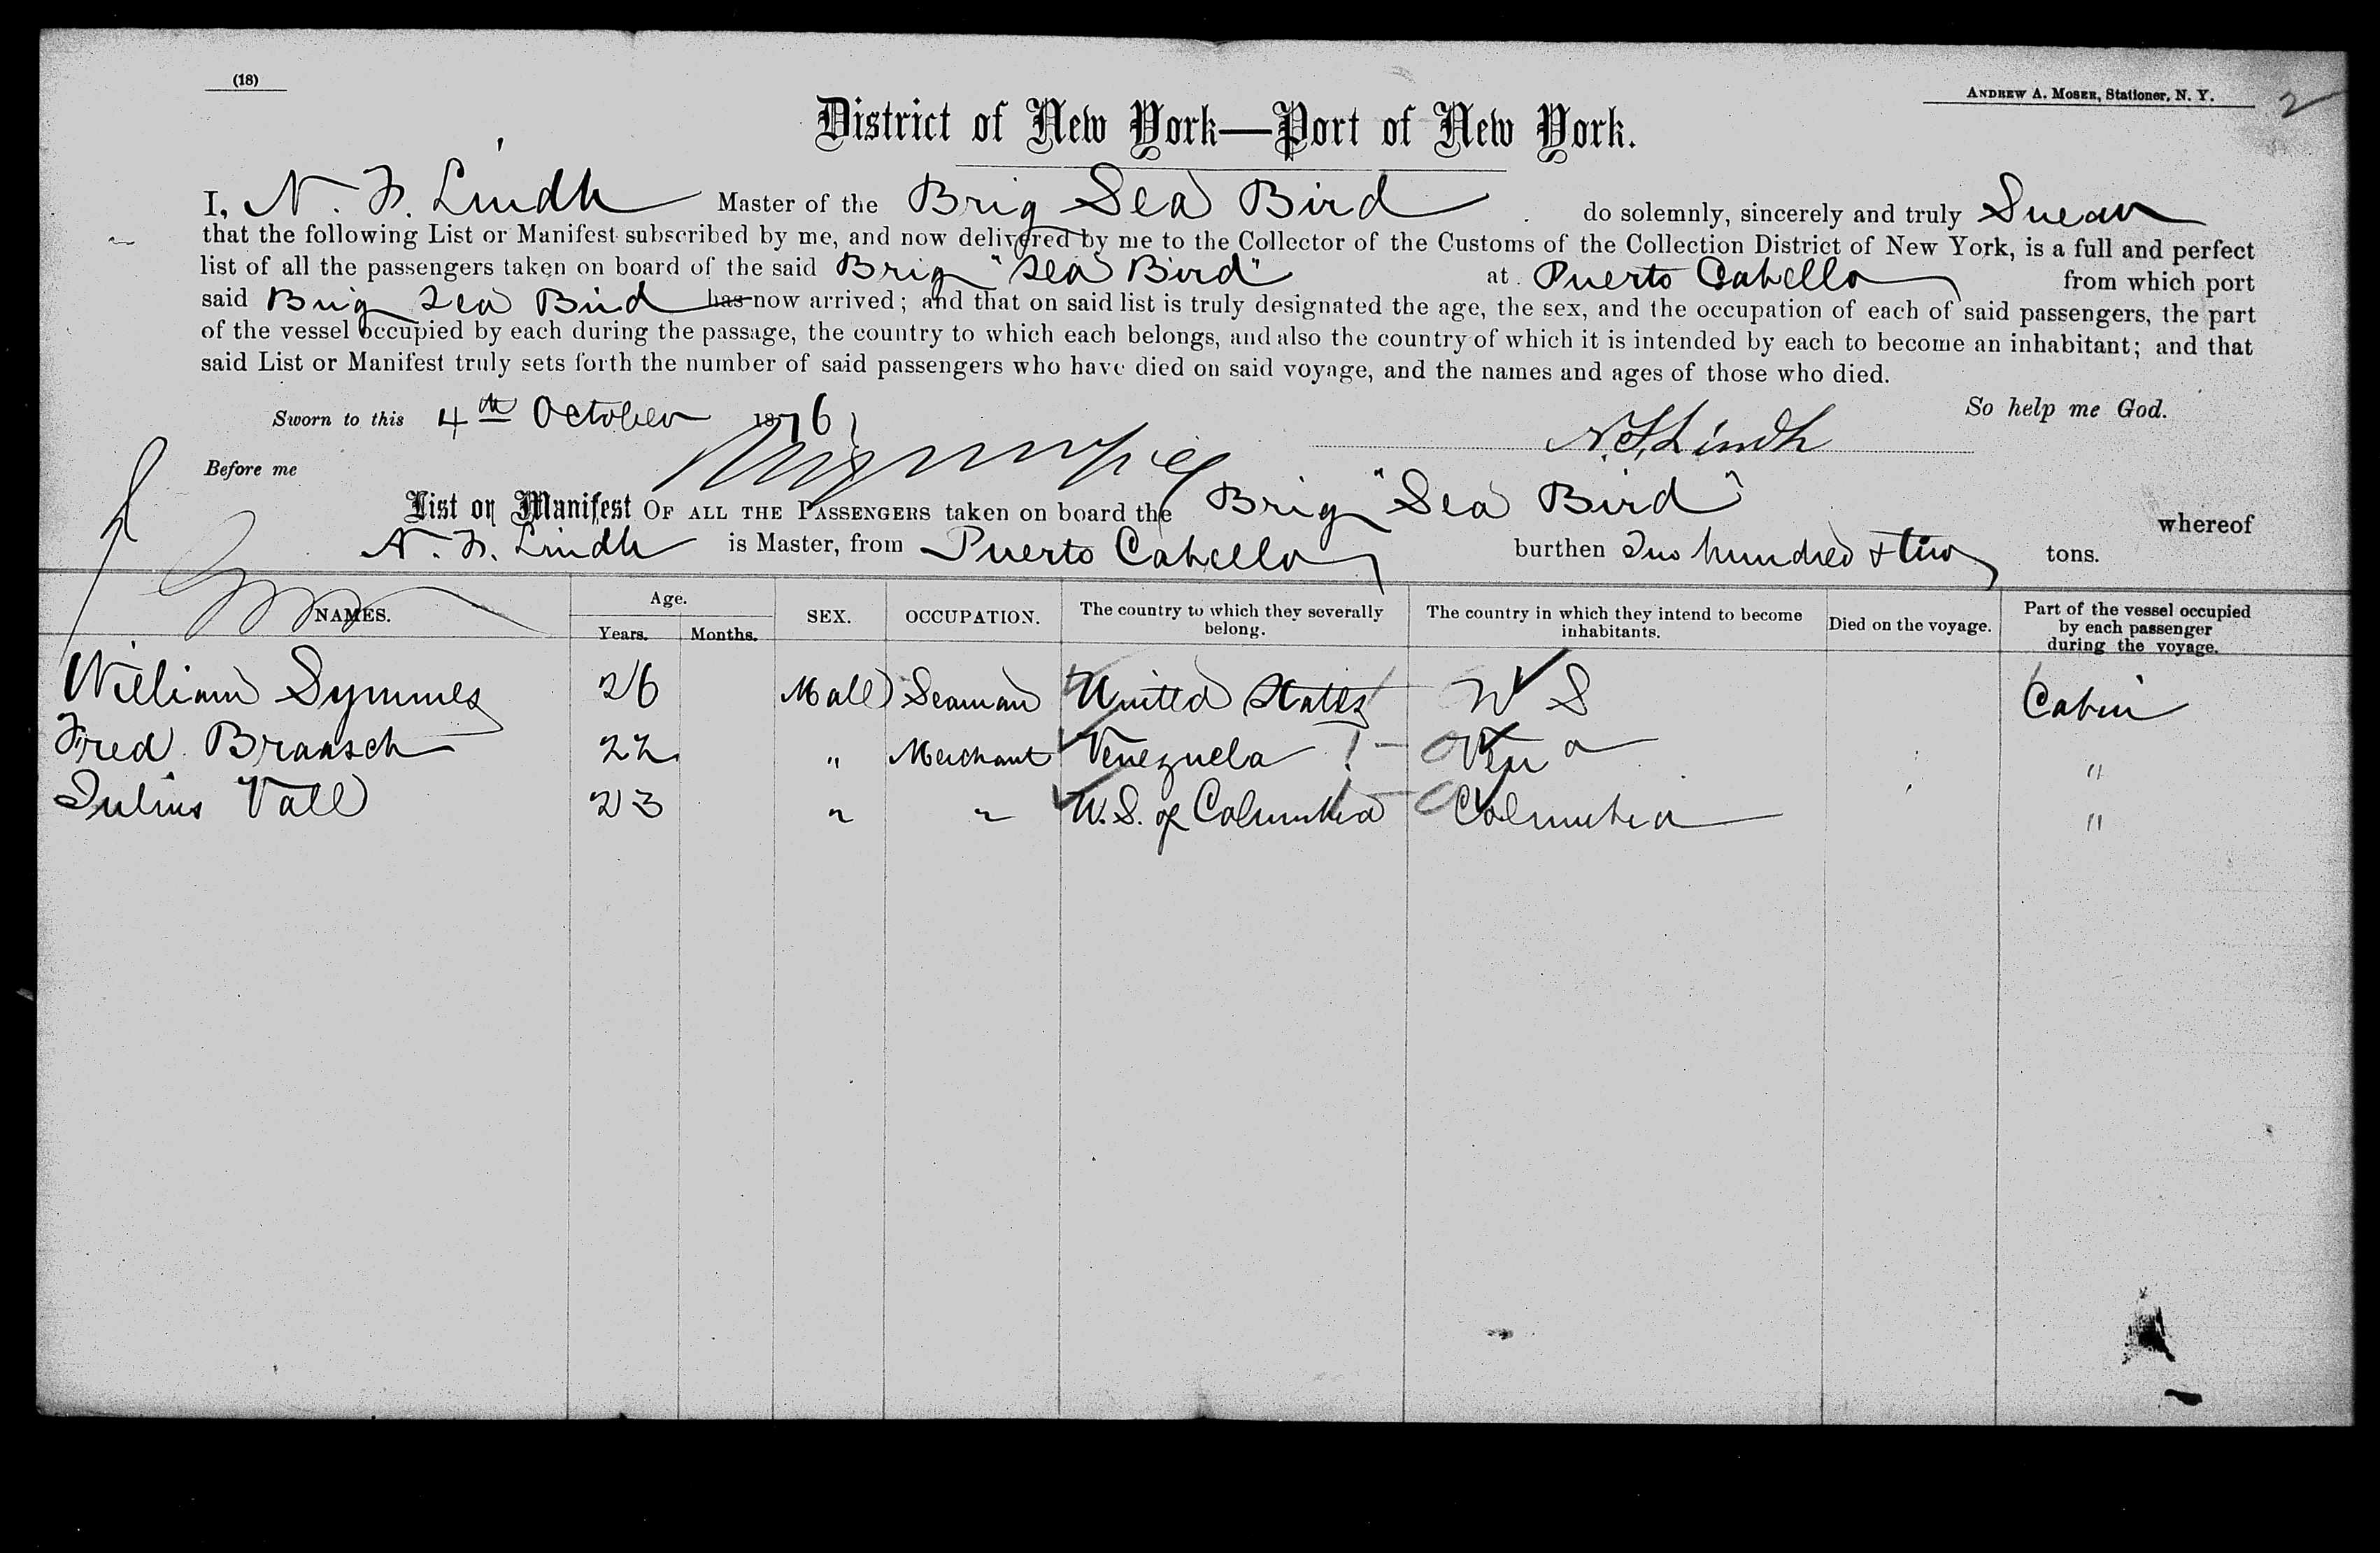 (18)
ANDREW A. MOSER, Stationer, N. Y.
2
District of New York—Port of New York.
I, N. F. Lindh Master of the Brig Sea Bird do solemnly, sincerely and truly Swear
that the following List or Manifest subscribed by me, and now delivered by me to the Collector of the Customs of the Collection District of New York, is a full and perfect
list of all the passengers taken on board of the said Brig "Sea Bird" at Puerto Cabello from which port
said Brig Sea Bird has now arrived; and that on said list is truly designated the age, the sex, and the occupation of each of said passengers, the part
of the vessel occupied by each during the passage, the country to which each belongs, and also the country of which it is intended by each to become an inhabitant; and that
said List or Manifest truly sets forth the number of said passengers who have died on said voyage, and the names and ages of those who died.
Sworn to this 4th October 1876 So help me God.
N. F. Lindh
Before me
List or Manifest OF ALL THE PASSENGERS taken on board the Brig "Sea Bird" whereof
N. F. Lindh is Master, from Puerto Cabello burthen Two hundred & two tons.
NAMES. Age. Years. Months. SEX. OCCUPATION. The country to which they severally belong. The country in which they intend to become inhabitants. Died on the voyage. Part of the vessel occupied by each passenger during the voyage.
William Symmes 26 Male Seaman United States U S Cabin
Fred Braasch 22 " Merchant Venezuela Ven a "
Julius Vall 23 " " U.S. of Columbia Columbia "